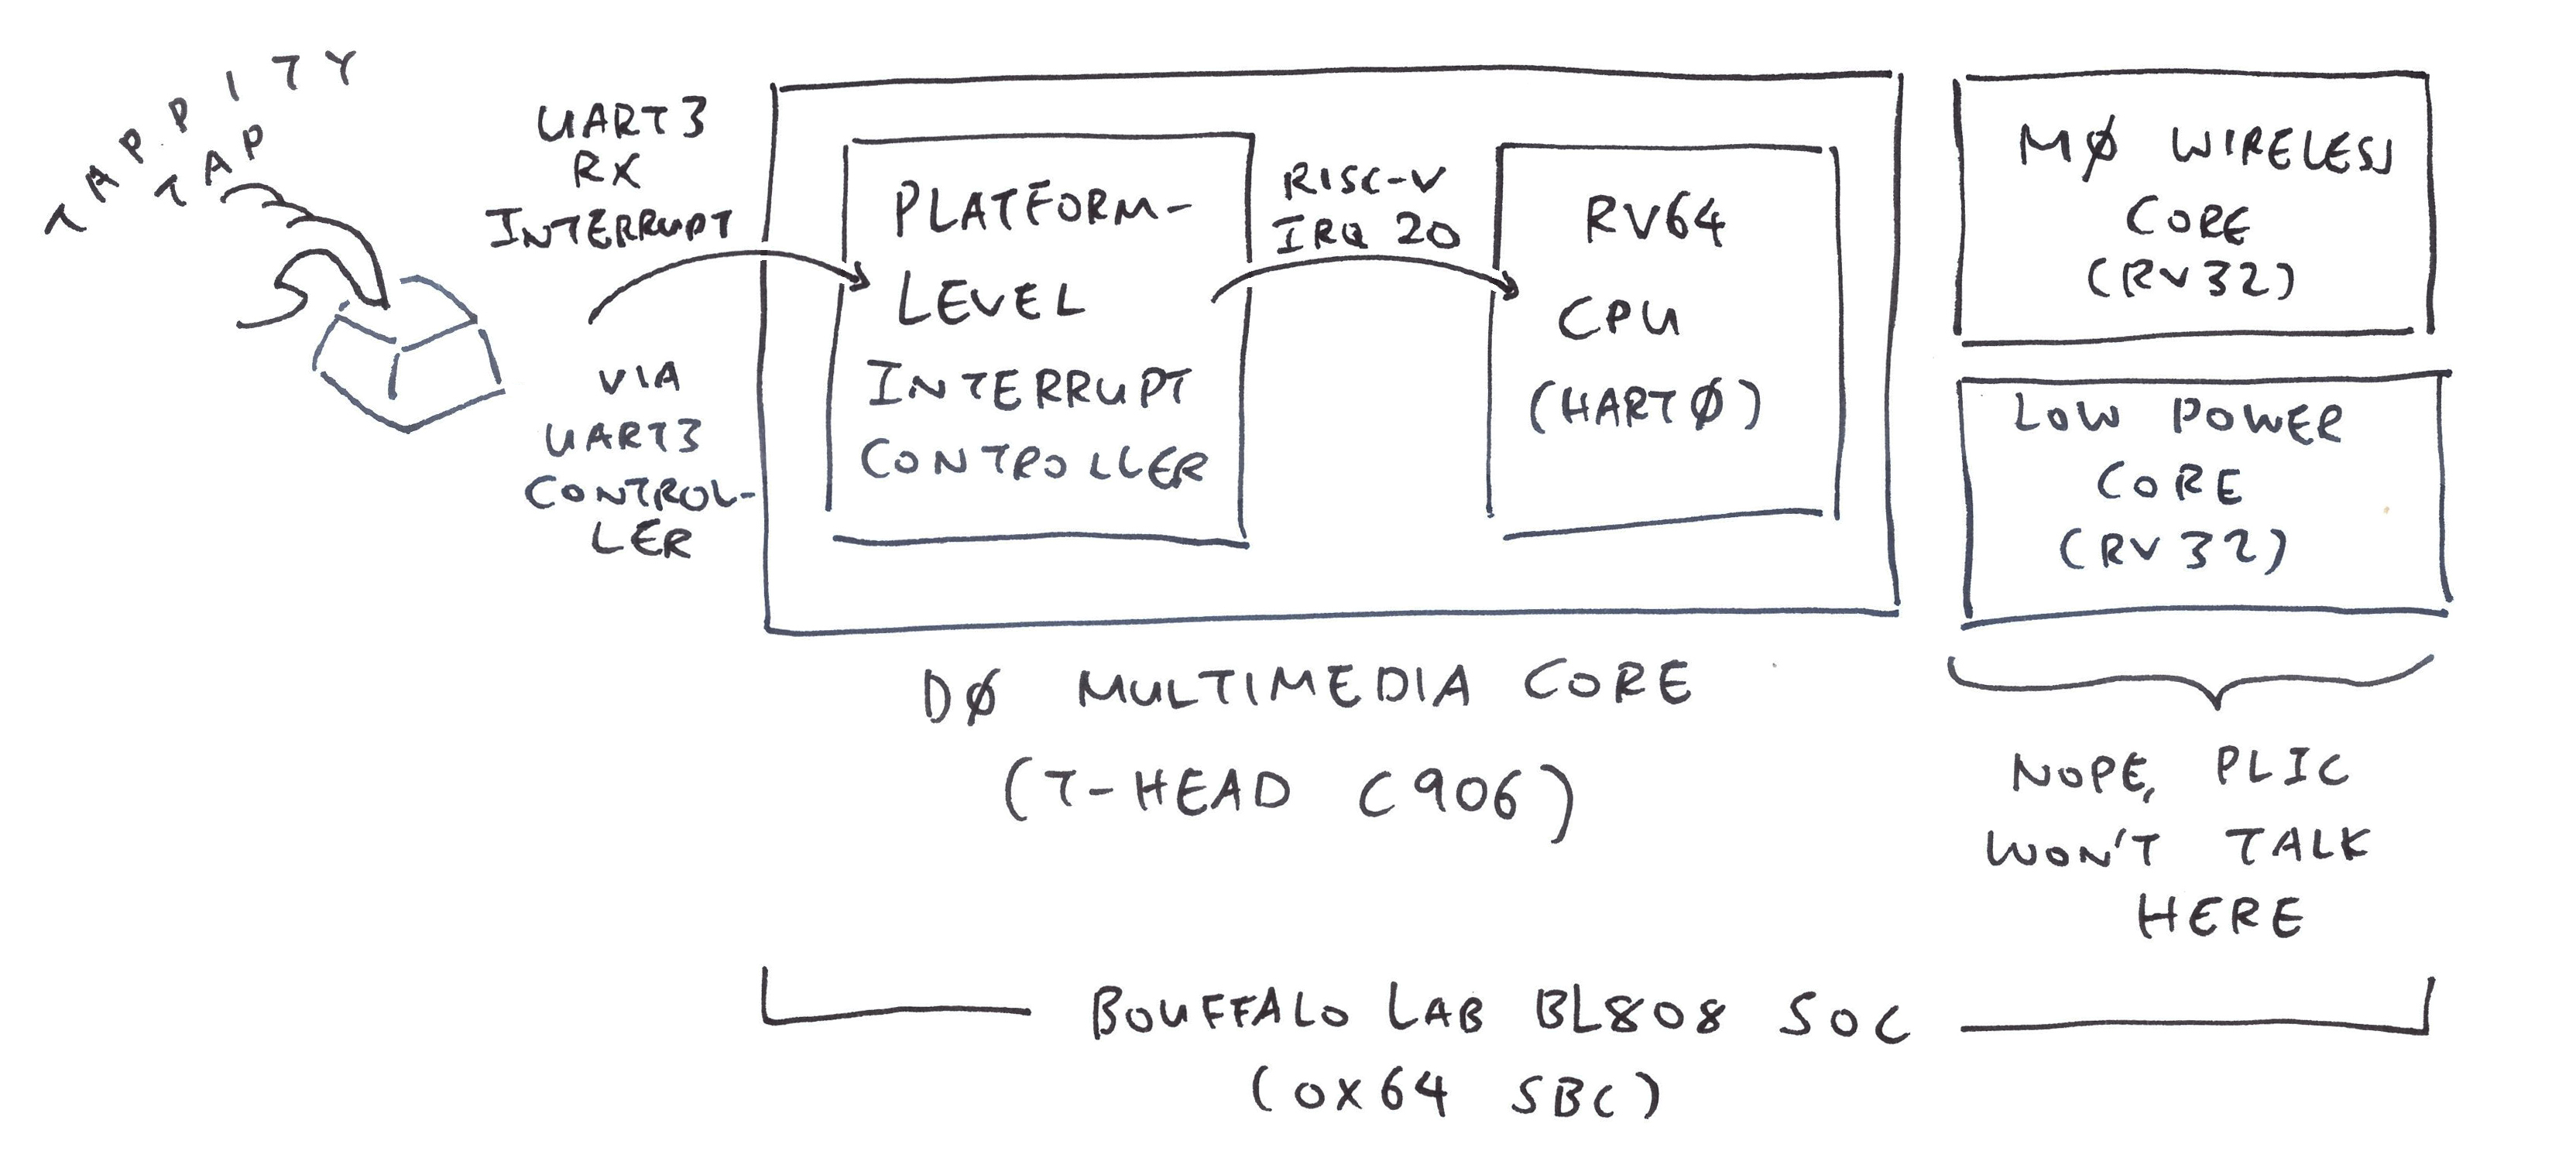 TAPPITY
TAP
UART3
RX
INTERRUPT
VIA
UART3
CONTROL-
LER
PLATFORM-
LEVEL
INTERRUPT
CONTROLLER
RISC-V
IRQ 20
RV64
CPU
(HART0)
D0 MULTIMEDIA CORE
(T-HEAD C906)
M0 WIRELESS
CORE
(RV32)
LOW POWER
CORE
(RV32)
NOPE, PLIC
WON'T TALK
HERE
BOUFFALO LAB BL808 SOC
(OX64 SBC)